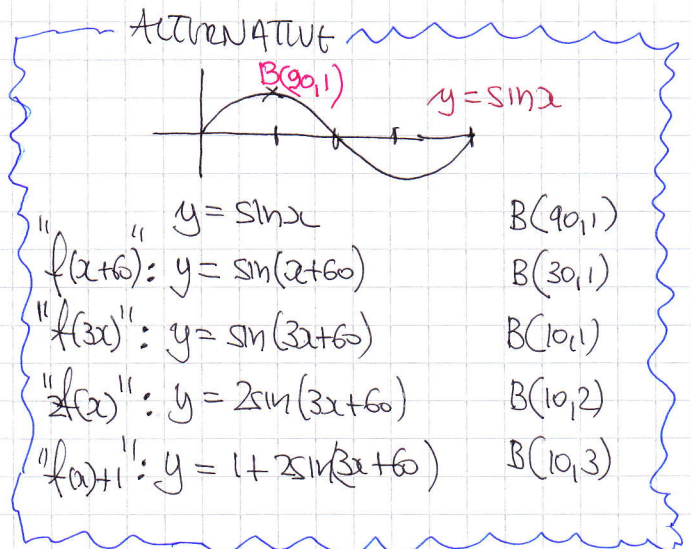 ALTERNATIVE
B(90,1)
y = sinx
y = sinx B(90,1)
"f(x+60)": y = sin(x+60) B(30,1)
"f(3x)": y = sin(3x+60) B(10,1)
"2f(x)": y = 2sin(3x+60) B(10,2)
"f(x)+1": y = 1+2sin(3x+60) B(10,3)